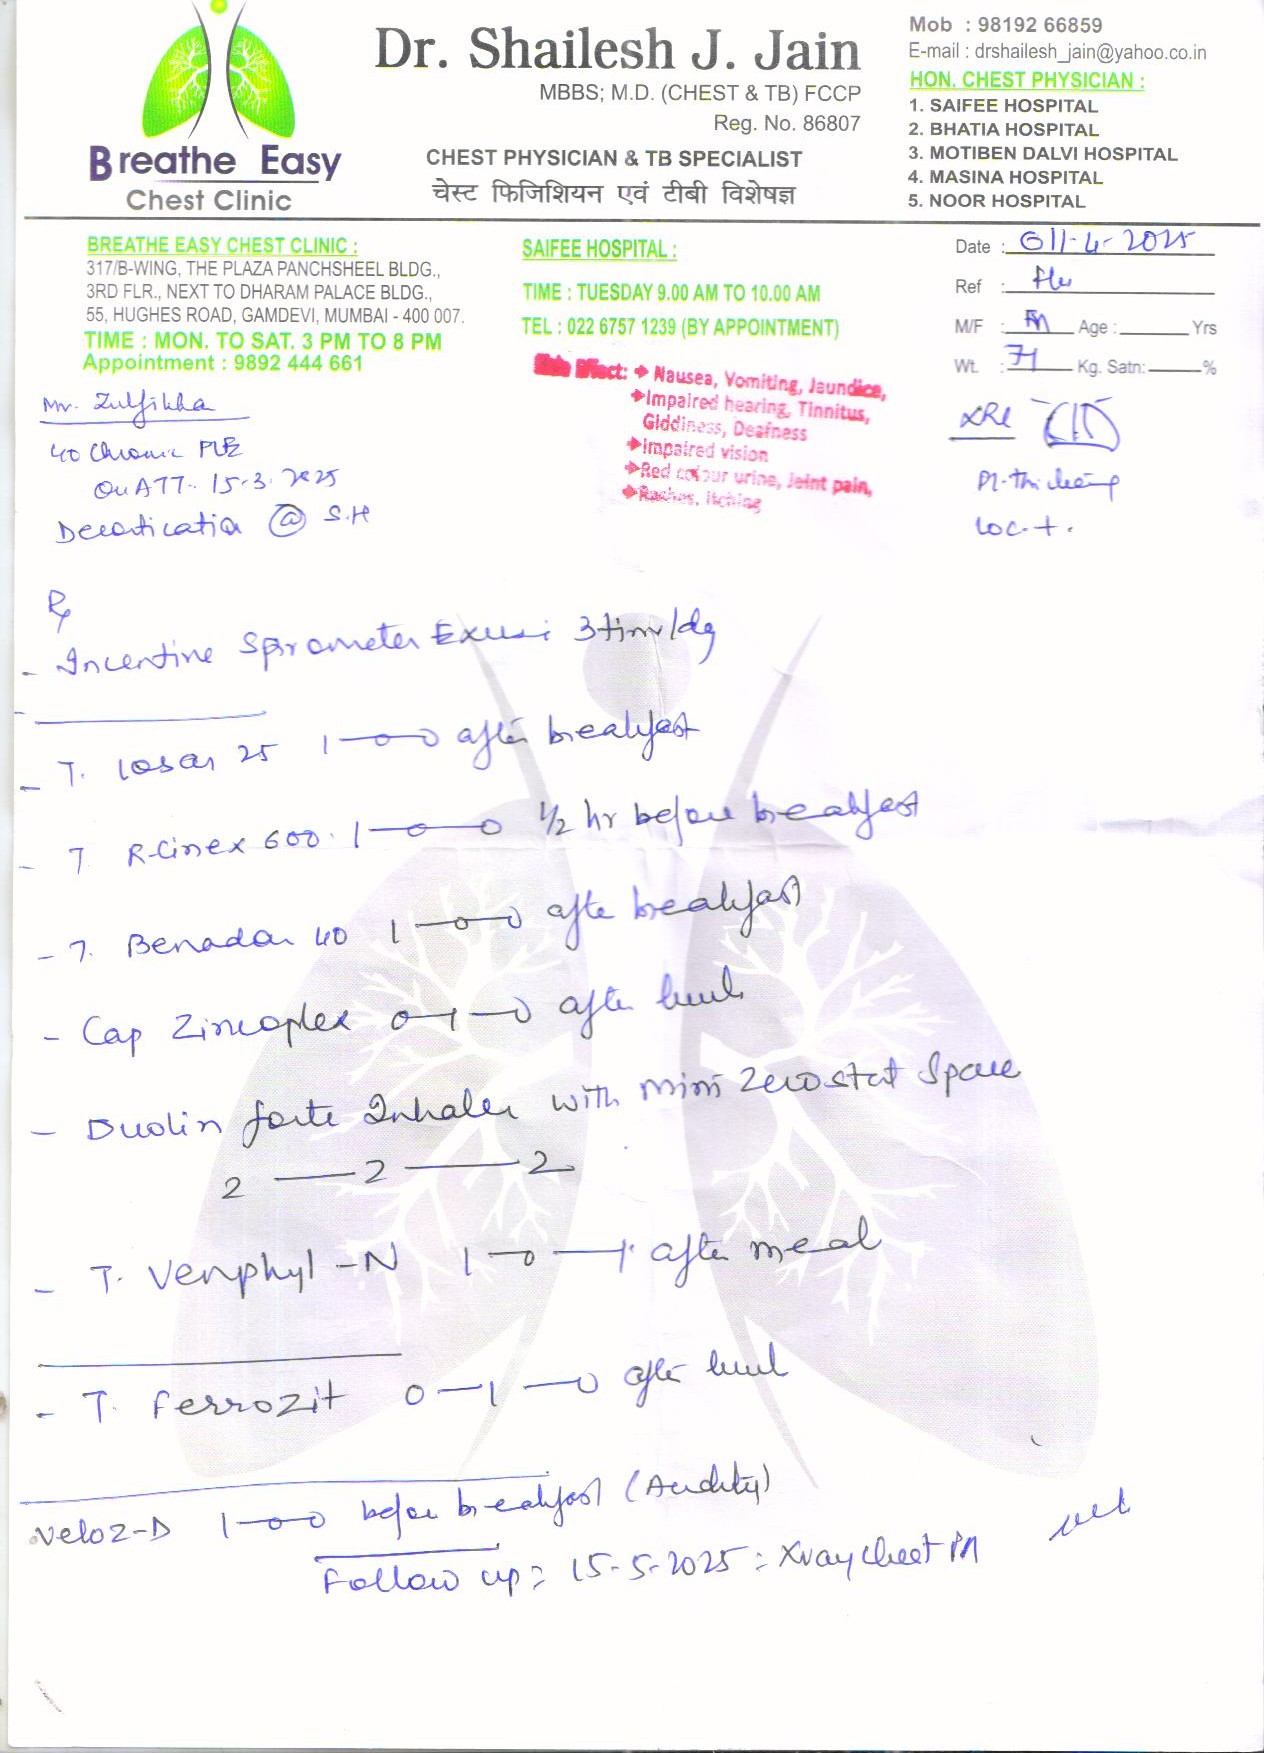 Breathe Easy
Chest Clinic
Dr. Shailesh J. Jain
MBBS; M.D. (CHEST & TB) FCCP
Reg. No. 86807
CHEST PHYSICIAN & TB SPECIALIST
चेस्ट फिजिशियन एवं टीबी विशेषज्ञ
Mob : 98192 66859
E-mail : drshailesh_jain@yahoo.co.in
HON. CHEST PHYSICIAN :
1. SAIFEE HOSPITAL
2. BHATIA HOSPITAL
3. MOTIBEN DALVI HOSPITAL
4. MASINA HOSPITAL
5. NOOR HOSPITAL
BREATHE EASY CHEST CLINIC :
317/B-WING, THE PLAZA PANCHSHEEL BLDG.,
3RD FLR., NEXT TO DHARAM PALACE BLDG.,
55, HUGHES ROAD, GAMDEVI, MUMBAI - 400 007.
TIME : MON. TO SAT. 3 PM TO 8 PM
Appointment : 9892 444 661
SAIFEE HOSPITAL :
TIME : TUESDAY 9.00 AM TO 10.00 AM
TEL : 022 6757 1239 (BY APPOINTMENT)
Date : 11-4-2025
Ref :
M/F : M Age : Yrs
Wt. : 71 Kg. Satn: %
Side Effect: Nausea, Vomiting, Jaundice,
Impaired hearing, Tinnitus,
Giddiness, Deafness
Impaired vision
Red colour urine, Joint pain,
Rashes, Itching
Mr. Zulfikha
On ATT. 15-3-2025
Decortication @ S.H
Loc. +.
Rx
- Incentine Sprometer 3 tim/dg
- T. Losar 25 1-0-0 after breakfast
- T R-Cinex 600. 1-0-0 1/2 hr before breakfast
- T. Benadon 40 1-0-0 afte breakfast
- Cap Zincoplex 0-1-0 after lunch
- Duolin forte Inhaler with mini Zerostat Space
2 - 2 - 2
- T. Venphyl-N 1-0-1 after meal
- T. Ferrozit 0-1-0 after lunch
Veloz-D 1-0-0 before breakfast (Acidity)
Follow up = 15-5-2025 = Xray Chest PA